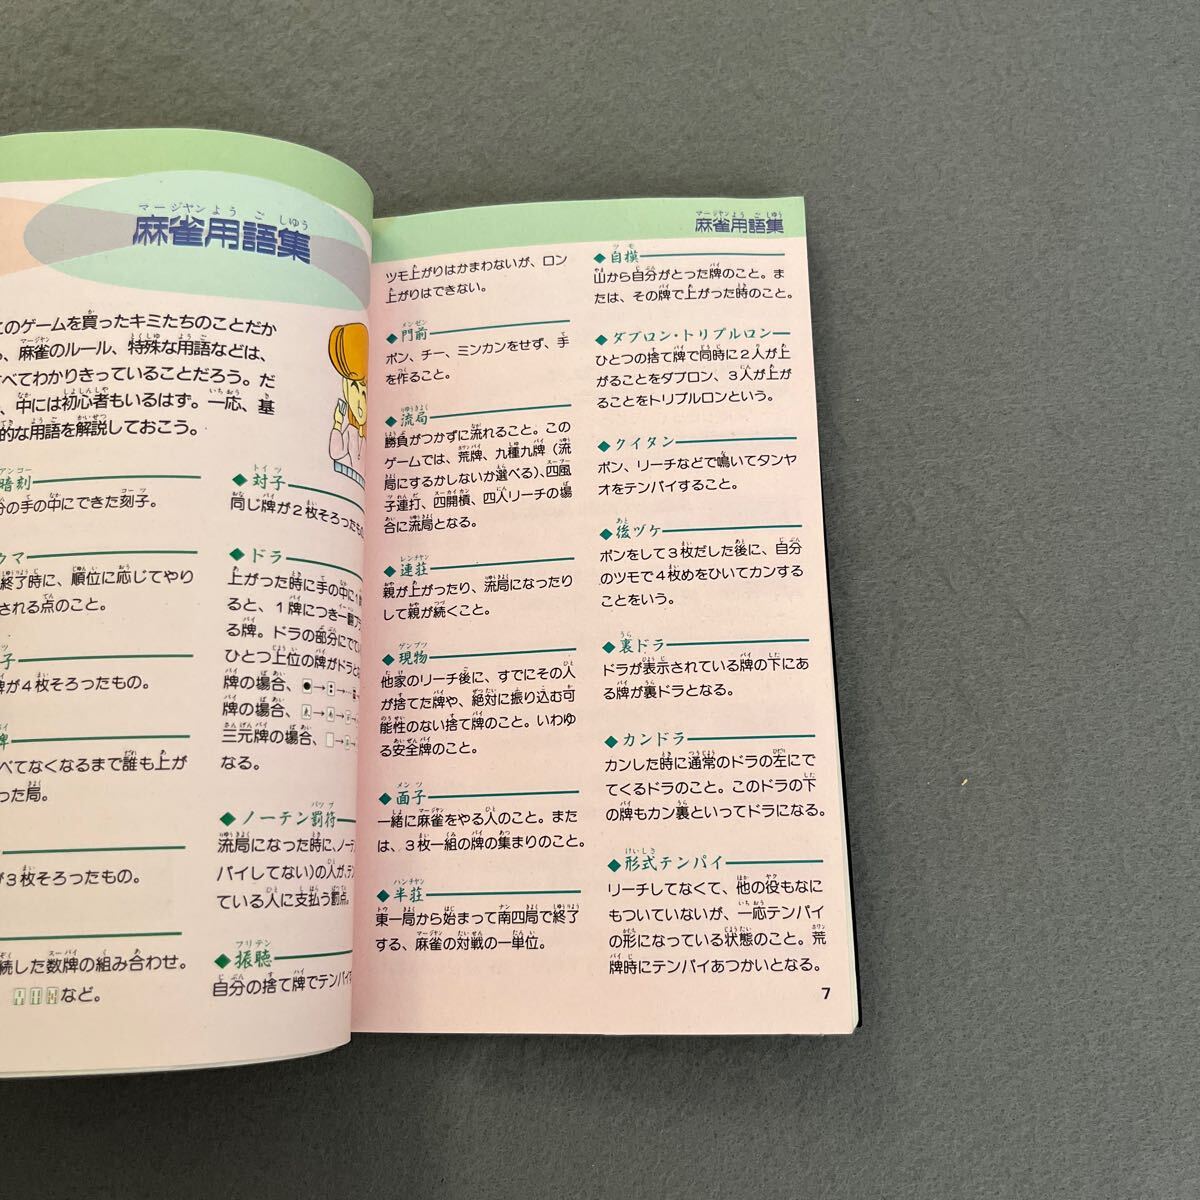 麻雀用語集
このゲームを買ったキミたちのことだか
ら、麻雀のルール、特殊な用語などは、
すべてわかりきっていることだろう。だ
、中には初心者もいるはず。一応、基
的な用語を解説しておこう。
暗刻
分の手の中にできた刻子。
ウマ
終了時に、順位に応じてやり
される点のこと。
子
牌が4枚そろったもの。
牌
べてなくなるまで誰も上が
った局。
が3枚そろったもの。
続した数牌の組み合わせ。
など。
◆対子
同じ牌が2枚そろったも
◆ドラ
上がった時に手の中に1
ると、1牌につき一飜プ
る牌。ドラの部分にでて
ひとつ上位の牌がドラと
牌の場合、
牌の場合、
三元牌の場合、
なる。
◆ノーテン罰符
流局になった時に、ノーテ
パイしてない)の人が、テン
ている人に支払う罰点。
◆振聴
自分の捨て牌でテンパイす
麻雀用語集
ツモ上がりはかまわないが、ロン
上がりはできない。
◆門前
ポン、チー、ミンカンをせず、手
を作ること。
◆流局
勝負がつかずに流れること。この
ゲームでは、荒牌、九種九牌(流
局にするかしないか選べる)、四風
子連打、四開槓、四人リーチの場
合に流局となる。
◆連荘
親が上がったり、流局になったり
して親が続くこと。
◆現物
他家のリーチ後に、すでにその人
が捨てた牌や、絶対に振り込む可
能性のない捨て牌のこと。いわゆ
る安全牌のこと。
◆面子
一緒に麻雀をやる人のこと。また
は、3枚一組の牌の集まりのこと。
◆半荘
東一局から始まって南四局で終了
する、麻雀の対戦の一単位。
◆自模
山から自分がとった牌のこと。ま
たは、その牌で上がった時のこと。
◆ダブロン・トリプルロン
ひとつの捨て牌で同時に2人が上
がることをダブロン、3人が上が
ることをトリプルロンという。
◆クイタン
ポン、リーチなどで鳴いてタンヤ
オをテンパイすること。
◆後ヅケ
ポンをして3枚だした後に、自分
のツモで4枚めをひいてカンする
ことをいう。
◆裏ドラ
ドラが表示されている牌の下にあ
る牌が裏ドラとなる。
◆カンドラ
カンした時に通常のドラの左にで
てくるドラのこと。このドラの下
の牌もカン裏といってドラになる。
◆形式テンパイ
リーチしてなくて、他の役もなに
もついていないが、一応テンパイ
の形になっている状態のこと。荒
牌時にテンパイあつかいとなる。
7